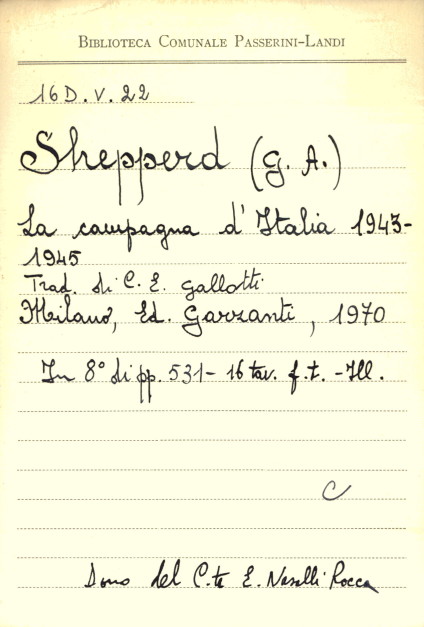 BIBLIOTECA COMUNALE PASSERINI-LANDI
16 D. V. 22
Shepperd (G. A.)
La campagna d'Italia 1943-
1945
Trad. di C. E. Gallotti
Milano, Ed. Garzanti, 1970
In 8° di pp. 531 - 16 tav. f. t. - Ill.
C
Dono del C.te E. Nasalli Rocca